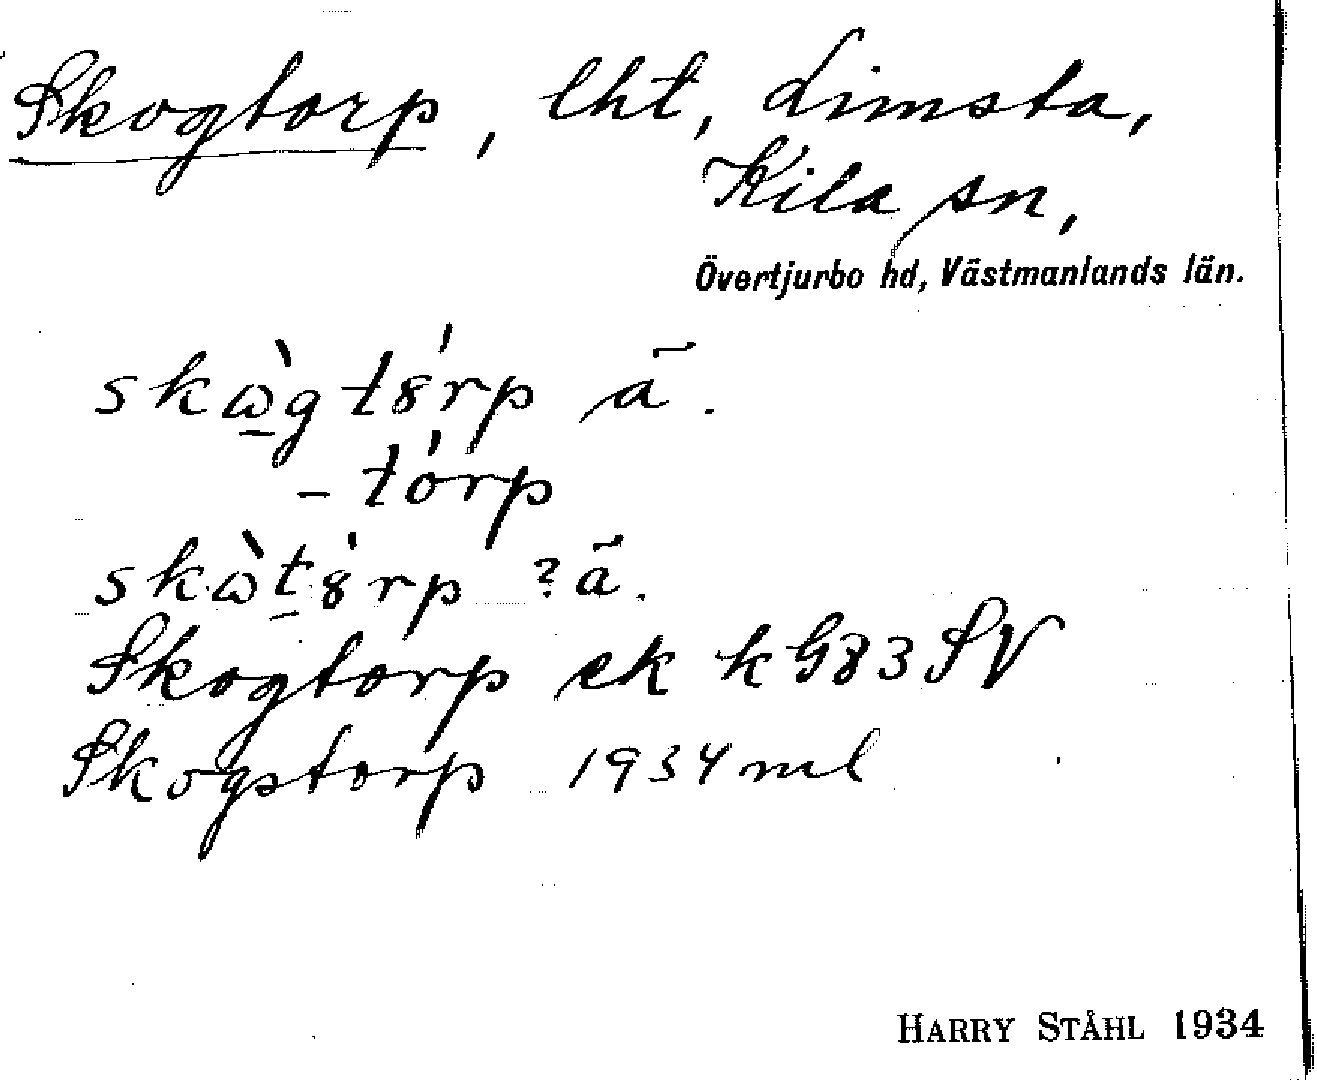 Skogtorp, lht, Limsta,
Kila sn,
Övertjurbo hd, Västmanlands län.
skὼ̱gtȣ́rp ã.
- tórp
skὼṯȣ́rp ? ã.
Skogtorp ek k G83 SV
Skogstorp 1934 ml
HARRY STÅHL 1934